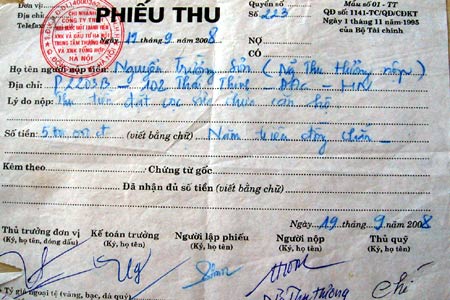 Đơn vị: PHIẾU THU Quyển số: Mẫu số 01 - TT
Địa chỉ: Số: 223 QĐ số 1141-TC/QĐ/CĐKT
Telefax: Ngày 1 tháng 11 năm 1995
Ngày 19 tháng 9 năm 2008 của Bộ Tài chính
NỢ
CÓ
Họ tên người nộp tiền: Nguyễn Trường Sơn (Thu Hường nộp)
Địa chỉ: P2203B - 102 Thái Thịnh - - HN
Lý do nộp: Thu tiền đặt cọc sửa chữa căn hộ
Số tiền: (viết bằng chữ) Năm triệu đồng chẵn
Kèm theo: Chứng từ gốc
Đã nhận đủ số tiền (viết bằng chữ)
Ngày 19 tháng 9 năm 2008
Thủ trưởng đơn vị Kế toán trưởng Người lập phiếu Người nộp Thủ quỹ
(Ký, họ tên, đóng dấu) (Ký, họ tên) (Ký, họ tên) (Ký, họ tên) (Ký, họ tên)
Tỷ giá ngoại tệ (vàng, bạc, đá quý)